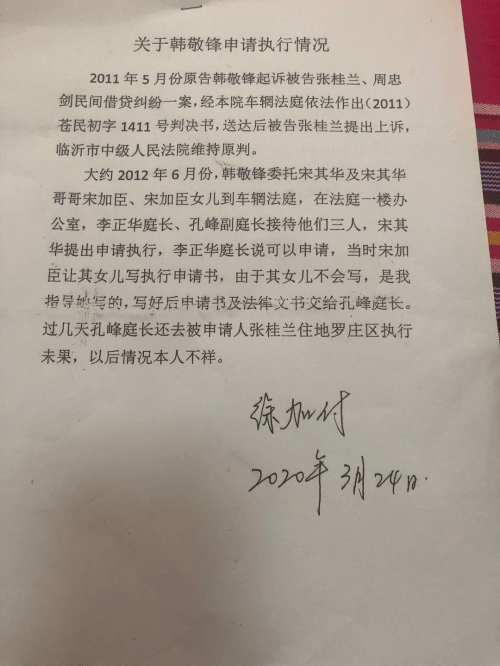 关于韩敬锋申请执行情况
2011年5月份原告韩敬锋起诉被告张桂兰、周忠
剑民间借贷纠纷一案，经本院车辋法庭依法作出（2011）
苍民初字1411号判决书，送达后被告张桂兰提出上诉，
临沂市中级人民法院维持原判。
大约2012年6月份，韩敬锋委托宋其华及宋其华
哥哥宋加臣、宋加臣女儿到车辋法庭，在法庭一楼办
公室，李正华庭长、孔峰副庭长接待他们三人，宋其
华提出申请执行，李正华庭长说可以申请，当时宋加
臣让其女儿写执行申请书，由于其女儿不会写，是我
指导她写的，写好后申请书及法律文书交给孔峰庭长。
过几天孔峰庭长还去被申请人张桂兰住地罗庄区执行
未果，以后情况本人不祥。
徐加付
2020年3月24日.